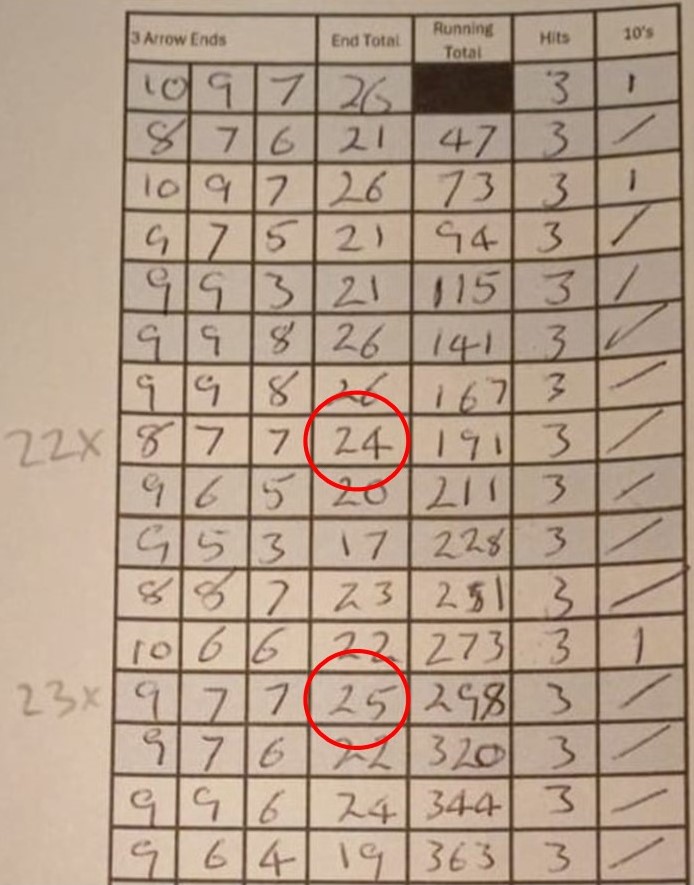 3 Arrow Ends End Total Running Total Hits 10's
10 9 7 26 3 1
8 7 6 21 47 3 /
10 9 7 26 73 3 1
9 7 5 21 94 3 /
9 9 3 21 115 3 /
9 9 8 26 141 3 /
9 9 8 26 167 3 /
22x 8 7 7 24 191 3 /
9 6 5 20 211 3 /
9 5 3 17 228 3 /
8 8 7 23 251 3 /
10 6 6 22 273 3 1
23x 9 7 7 25 298 3 /
9 7 6 22 320 3 /
9 9 6 24 344 3 /
9 6 4 19 363 3 /